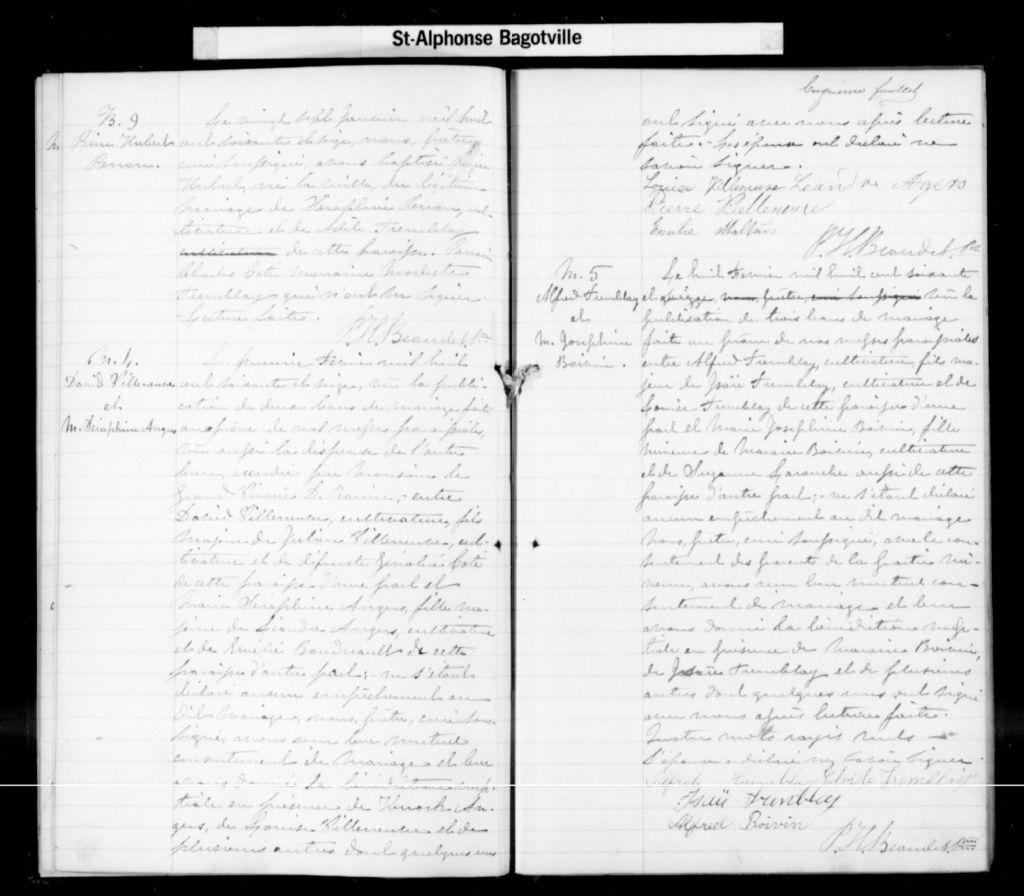 St-Alphonse Bagotville
B. 9
Pierre Hubert
Le vingt sept janvier mil huit
cent soixante et seize, nous, prêtre,
curé soussigné, avons baptisé Pierre
Hubert, né la veille, du légitime
mariage de Séraphin, cul-
tivateur et de Adèle Tremblay
cultivateur de cette paroisse. Parrain
Charles Coté marraine Modeste
Tremblay qui n'ont su signer.
Lecture faite.
P. H. Beaudet, Ptre
M. 4.
David Villeneuve
et
M. Séraphine Angers
Le premier Février mil huit
cent soixante et seize, vu la publi-
cation de deux bans de mariage faite
au prône de nos messes paroissiales,
vu aussi la dispense de l'autre
ban, accordée par Monsieur le
Grand Vicaire D. Racine, entre
David Villeneuve, cultivateur, fils
majeur de Julien Villeneuve, cul-
tivateur et de défunte Coté
de cette paroisse d'une part et
Marie Séraphine Angers, fille ma-
jeure de Léandre Angers, cultivateur
et de Emélie Boudreault de cette
paroisse d'autre part; ne s'étant
déclaré aucun empêchement au
dit mariage, nous, prêtre, curé sous-
signé, avons reçu leur mutuel
consentement de mariage et leur
avons donné la bénédiction nup-
tiale en présence de Henock An-
gers, de Louise Villeneuve et de
plusieurs autres dont quelques uns
Cinquième feuillet
ont signé avec nous après lecture
faite. Les époux ont déclaré ne
savoir signer.
Louise Villeneuve Leandre Angers
Pierre Villeneuve
Emilie Maltais
P. H. Beaudet, Ptre
M. 5
Alfred Tremblay
et
M. Josephine
Boivin.
Le huit Février mil huit cent soixante
et seize, nous, prêtre, curé soussigné vu la
publication de trois bans de mariage
faite au prône de nos messes paroissiales
entre Alfred Tremblay, cultivateur, fils ma-
jeur de Isaïe Tremblay, cultivateur et de
Louise Tremblay de cette paroisse d'une
part et Marie Josephine Boivin, fille
mineure de Boivin, cultivateur
et de Suzanne Larouche aussi de cette
paroisse d'autre part; ne s'étant déclaré
aucun empêchement au dit mariage
Nous, prêtre, curé soussigné, avec le con-
sentement des parents de la partie mi-
neure, avons reçu leur mutuel con-
sentement de mariage et leur
avons donné la bénédiction nup-
tiale en présence de Boivin,
de Isaïe Tremblay et de plusieurs
autres dont quelques uns ont signé
avec nous après lecture faite.
mots rayés nuls
L'épouse a déclaré ne savoir signer.
Alfred Tremblay Tremblay
Isaïe Tremblay
Alfred Boivin
P. H. Beaudet, Ptre